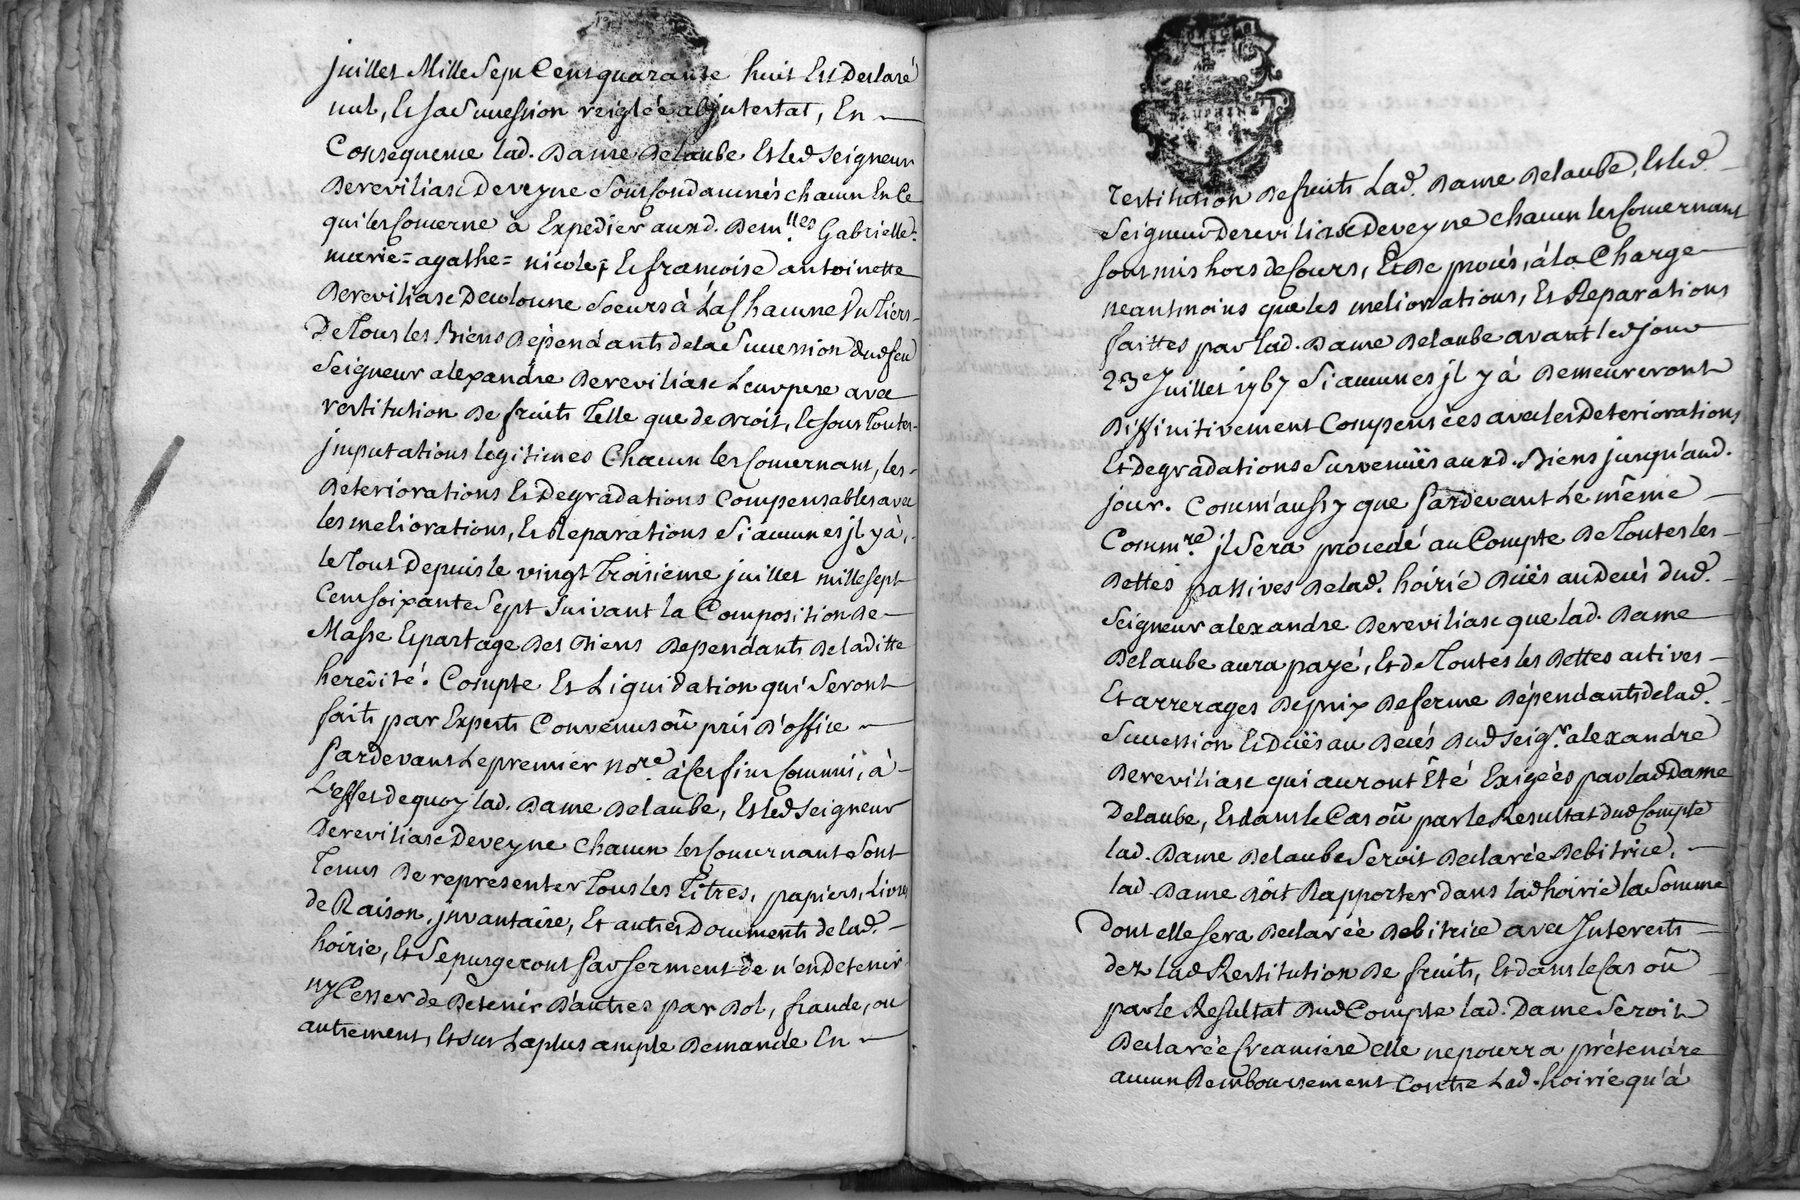 juillet Mille Sept Cent quarante huit Est Declaré
nul, Et sa Succession reiglée ab jntestat, En
Consequence lad. Dame Delaube Et led Seigneur
Dereviliasc Deveyne Sont Condamnés chacun En Ce
qui les Concerne à Expedier auxd. Dem.lles Gabrielle=
marie=agathe= nicole, Et françoise antoinette
Dereviliasc Decoloune Soeurs à Laf. hacune Un Tiers
De Tous les Biens Dépendants dela Succession dud feu
Seigneur alexandre Dereviliasc Leur pere avec
restitution De fruits Telle que de Droit, Et sous Toutes
jmputations legitimes Chacun les Concernant, les
Deteriorations Et Degradations Compensables avec
les meliorations, Et Reparations Si aucunes jl y à,
le Tout Depuis le vingt Troisieme juillet mille sept
Cent soixante Sept Suivant la Composition De
Masse Et partage Des Biens Dependants De laditte
heredité. Compte Et Liquidation qui Seront
faits par Experts Convenus oû pris D'office
Pardevant Le premier no.re à Ces fins Commis, à
L'effet de quoy lad. Dame Delaube, Et led Seigneur
Dereviliasc Deveyne Chacun les Concernant Sont
Tenus De representer Tous les Titres, papiers, Livres
de Raison, jnvantaire, Et autres Documents de lad.
hoirie, Et Se purgeront Par serment de n'en Detenir
ny Cesser de Detenir D'autres par Dol, fraude, ou
autrement, Et sur La plus ample Demande En
DAUPHINE
restitution De fruits Lad. Dame Delaube, Et led.
Seigneur Dereviliasc Deveyne Chacun les Concernant
Sont mis hors de Cours, Et De procés, à la Charge
neantmoins que les meliorations, Et Reparations
faittes par lad. Dame Delaube avant led jour
23e Juillet 1767 Si aucunes jl y à Demeureront
Diffinitivement Compensées avec les Deteriorations
Et Degradations Survenuës auxd. Biens jusqu'aud.
jour. Comm'aussy que Pardevant Le même
Comm.re jl Sera procedé au Compte De Toutes les
Dettes passives De lad. hoirie Düës au Decés dud.
Seigneur alexandre Dereviliasc que lad. Dame
Delaube aura payé, Et de Toutes les Dettes actives
Et arrerages De prix De ferme Dépendants de lad.
Succession Et Düës au Decés Dud Seig.r alexandre
Dereviliasc qui auront Été Exigées par lad Dame
Delaube, Et dans le Cas oû par le Resultat dud Compte
lad. Dame Delaube Seroit Declarée Debitrice,
lad. Dame Doit Rapporter dans lad hoirie la Somme
Dont elle sera Declarée Debitrice avec Interests
dez lad Restitution De fruits, Et dans le Cas oû
par le Resultat Dud Compte lad. Dame Seroit
Declarée Creanciere elle ne pourra prétendre
aucun Remboursement Contre Lad. hoirie qu'à